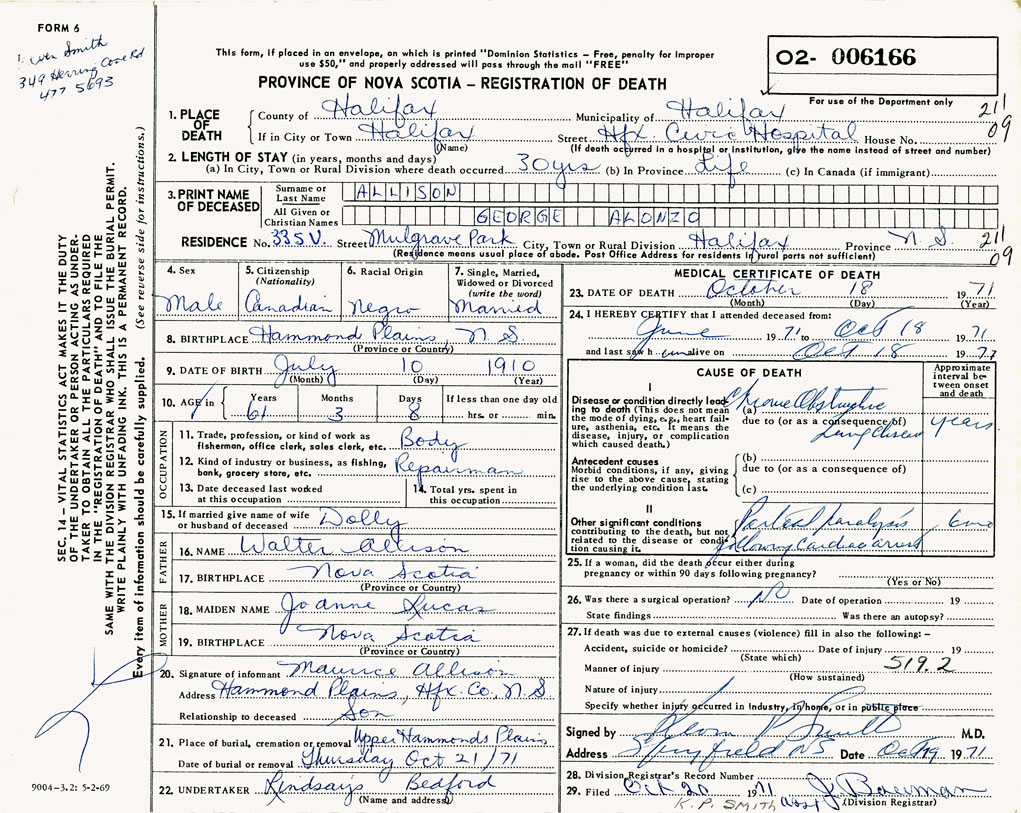 FORM 6
Smith
349 Herring Cove Rd
477 5693
This form, if placed in an envelope, on which is printed "Dominion Statistics – Free, penalty for improper
use $50," and properly addressed will pass through the mail "FREE"
02- 006166
PROVINCE OF NOVA SCOTIA – REGISTRATION OF DEATH
For use of the Department only
1. PLACE OF DEATH
County of Halifax Municipality of Halifax 211
If in City or Town Halifax Street Hfx. Civic Hospital House No. 09
(Name) (If death occurred in a hospital or institution, give the name instead of street and number)
2. LENGTH OF STAY (in years, months and days)
(a) In City, Town or Rural Division where death occurred 30 yrs (b) In Province Life (c) In Canada (if immigrant)
3. PRINT NAME OF DECEASED
Surname or Last Name ALLISON
All Given or Christian Names GEORGE ALONZO
RESIDENCE No. 33SV. Street Mulgrave Park City, Town or Rural Division Halifax Province N.S. 211
(Residence means usual place of abode. Post Office Address for residents in rural parts not sufficient) 09
4. Sex
Male
5. Citizenship
(Nationality)
Canadian
6. Racial Origin
Negro
7. Single, Married,
Widowed or Divorced
(write the word)
Married
8. BIRTHPLACE Hammond Plains, N.S.
(Province or Country)
9. DATE OF BIRTH July 10 1910
(Month) (Day) (Year)
10. AGE in Years Months Days If less than one day old
61 3 8 hrs. or min.
OCCUPATION
11. Trade, profession, or kind of work as
fisherman, office clerk, sales clerk, etc. Body
12. Kind of industry or business, as fishing,
bank, grocery store, etc. Repairman
13. Date deceased last worked
at this occupation
14. Total yrs. spent in
this occupation
15. If married give name of wife
or husband of deceased Dolly
FATHER
16. NAME Walter Allison
17. BIRTHPLACE Nova Scotia
(Province or Country)
MOTHER
18. MAIDEN NAME Joanne Lucas
19. BIRTHPLACE Nova Scotia
(Province or Country)
20. Signature of informant Maurice Allison
Address Hammond Plains, Hfx. Co. N.S.
Relationship to deceased Son
21. Place of burial, cremation or removal Upper Hammonds Plains
Date of burial or removal Thursday Oct 21/71
22. UNDERTAKER Lindsay's Bedford
(Name and address)
MEDICAL CERTIFICATE OF DEATH
23. DATE OF DEATH October 18 1971
(Month) (Day) (Year)
24. I HEREBY CERTIFY that I attended deceased from:
June 1971 to Oct 18 1971
and last saw him alive on Oct 18 1971
CAUSE OF DEATH
Approximate
interval be-
tween onset
and death
I
Disease or condition directly lead-
ing to death (This does not mean
the mode of dying, e.g., heart fail-
ure, asthenia, etc. it means the
disease, injury, or complication
which caused death.)
(a) Chronic Obstructive
due to (or as a consequence of)
Lung disease years
Antecedent causes
Morbid conditions, if any, giving
rise to the above cause, stating
the underlying condition last.
(b)
due to (or as a consequence of)
(c)
II
Other significant conditions
contributing to the death, but not
related to the disease or condi-
tion causing it.
Partial paralysis 6 mo
following cardiac arrest
25. If a woman, did the death occur either during
pregnancy or within 90 days following pregnancy?
(Yes or No)
26. Was there a surgical operation? No Date of operation 19
State findings Was there an autopsy?
27. If death was due to external causes (violence) fill in also the following: –
Accident, suicide or homicide? Date of injury 19
(State which)
Manner of injury 519.2
(How sustained)
Nature of injury
Specify whether injury occurred in industry, in home, or in public place
Signed by M.D.
Address Spryfield NS Date Oct 19 1971
28. Division Registrar's Record Number
29. Filed Oct 20 1971 J. Bowman
K. P. SMITH Asst (Division Registrar)
SEC. 14 – VITAL STATISTICS ACT MAKES IT THE DUTY
OF THE UNDERTAKER OR PERSON ACTING AS UNDER-
TAKER TO OBTAIN ALL THE PARTICULARS REQUIRED
IN THE "REGISTRATION OF DEATH" AND TO FILE THE
SAME WITH THE DIVISION REGISTRAR WHO SHALL ISSUE THE BURIAL PERMIT.
WRITE PLAINLY WITH UNFADING INK. THIS IS A PERMANENT RECORD.
Every item of information should be carefully supplied. (See reverse side for instructions.)
9004-3.2: 5-2-69